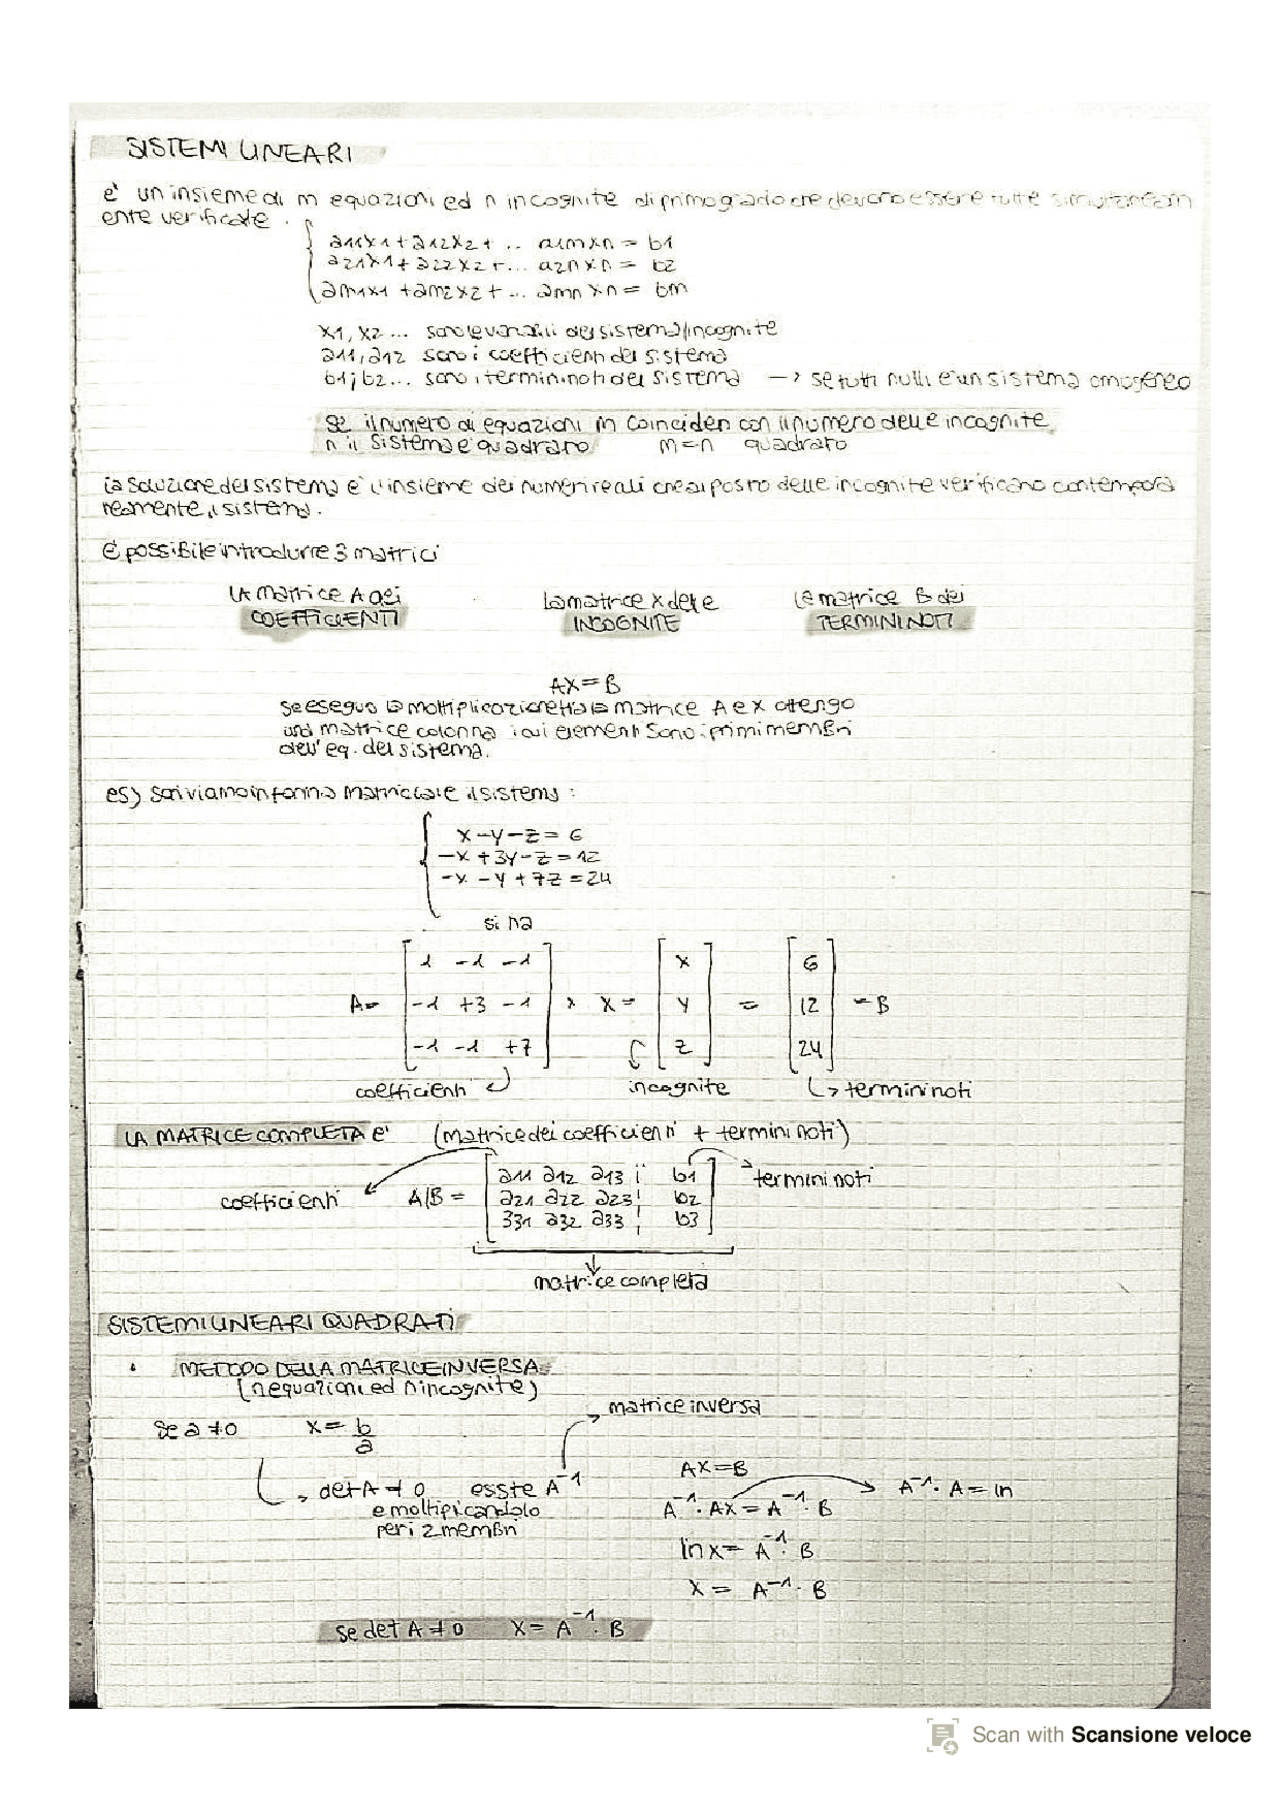 SISTEMI LINEARI
è un insieme di m equazioni ed n incognite di primo grado che devono essere tutte simultaneam
ente verificate.
a11x1 + a12x2 + .. a1mxn = b1
a21x1 + a22x2 + ... a2nxn = b2
am1x1 + am2x2 + ... amnxn = bm
x1, x2 ... sono le variabili del sistema/incognite
a11, a12 sono i coefficienti del sistema
b1; b2 ... sono i termini noti del sistema → se tutti nulli è un sistema omogeneo
se il numero di equazioni m coinciden con il numero delle incognite
n il sistema è quadrato m=n quadrato
la soluzione del sistema è l'insieme dei numeri reali che al posto delle incognite verificano contempora
neamente il sistema.
È possibile introdurre 3 matrici
LA matrice A dei La matrice X delle la matrice B dei
COEFFICIENTI INCOGNITE TERMINI NOTI
AX = B
se eseguo la moltiplicazione tra la matrice A e X ottengo
una matrice colonna i cui elementi sono i primi membri
dell'eq. del sistema.
es) scriviamo in forma matriciale il sistema :
x - y - z = 6
-x + 3y - z = 12
-x - y + 7z = 24
si ha
1 -1 -1 x 6
A= -1 +3 -1 × X = y = 12 = B
-1 -1 +7 z 24
coefficienti incognite termini noti
LA MATRICE COMPLETA È (matrice dei coefficienti + termini noti)
a11 a12 a13 ¦ b1 → termini noti
coefficienti A|B = a21 a22 a23 ¦ b2
a31 a32 a33 ¦ b3
matrice completa
SISTEMI LINEARI QUADRATI
• METODO DELLA MATRICE INVERSA
(n equazioni ed n incognite)
matrice inversa
se a ≠ 0 x = b/a
AX = B
→ det A ≠ 0 esste A⁻¹
A⁻¹ · AX = A⁻¹ · B → A⁻¹ · A = In
e moltipicandolo
per i 2 membri
In x = A⁻¹ · B
X = A⁻¹ · B
se det A ≠ 0 X = A⁻¹ · B
Scan with Scansione veloce